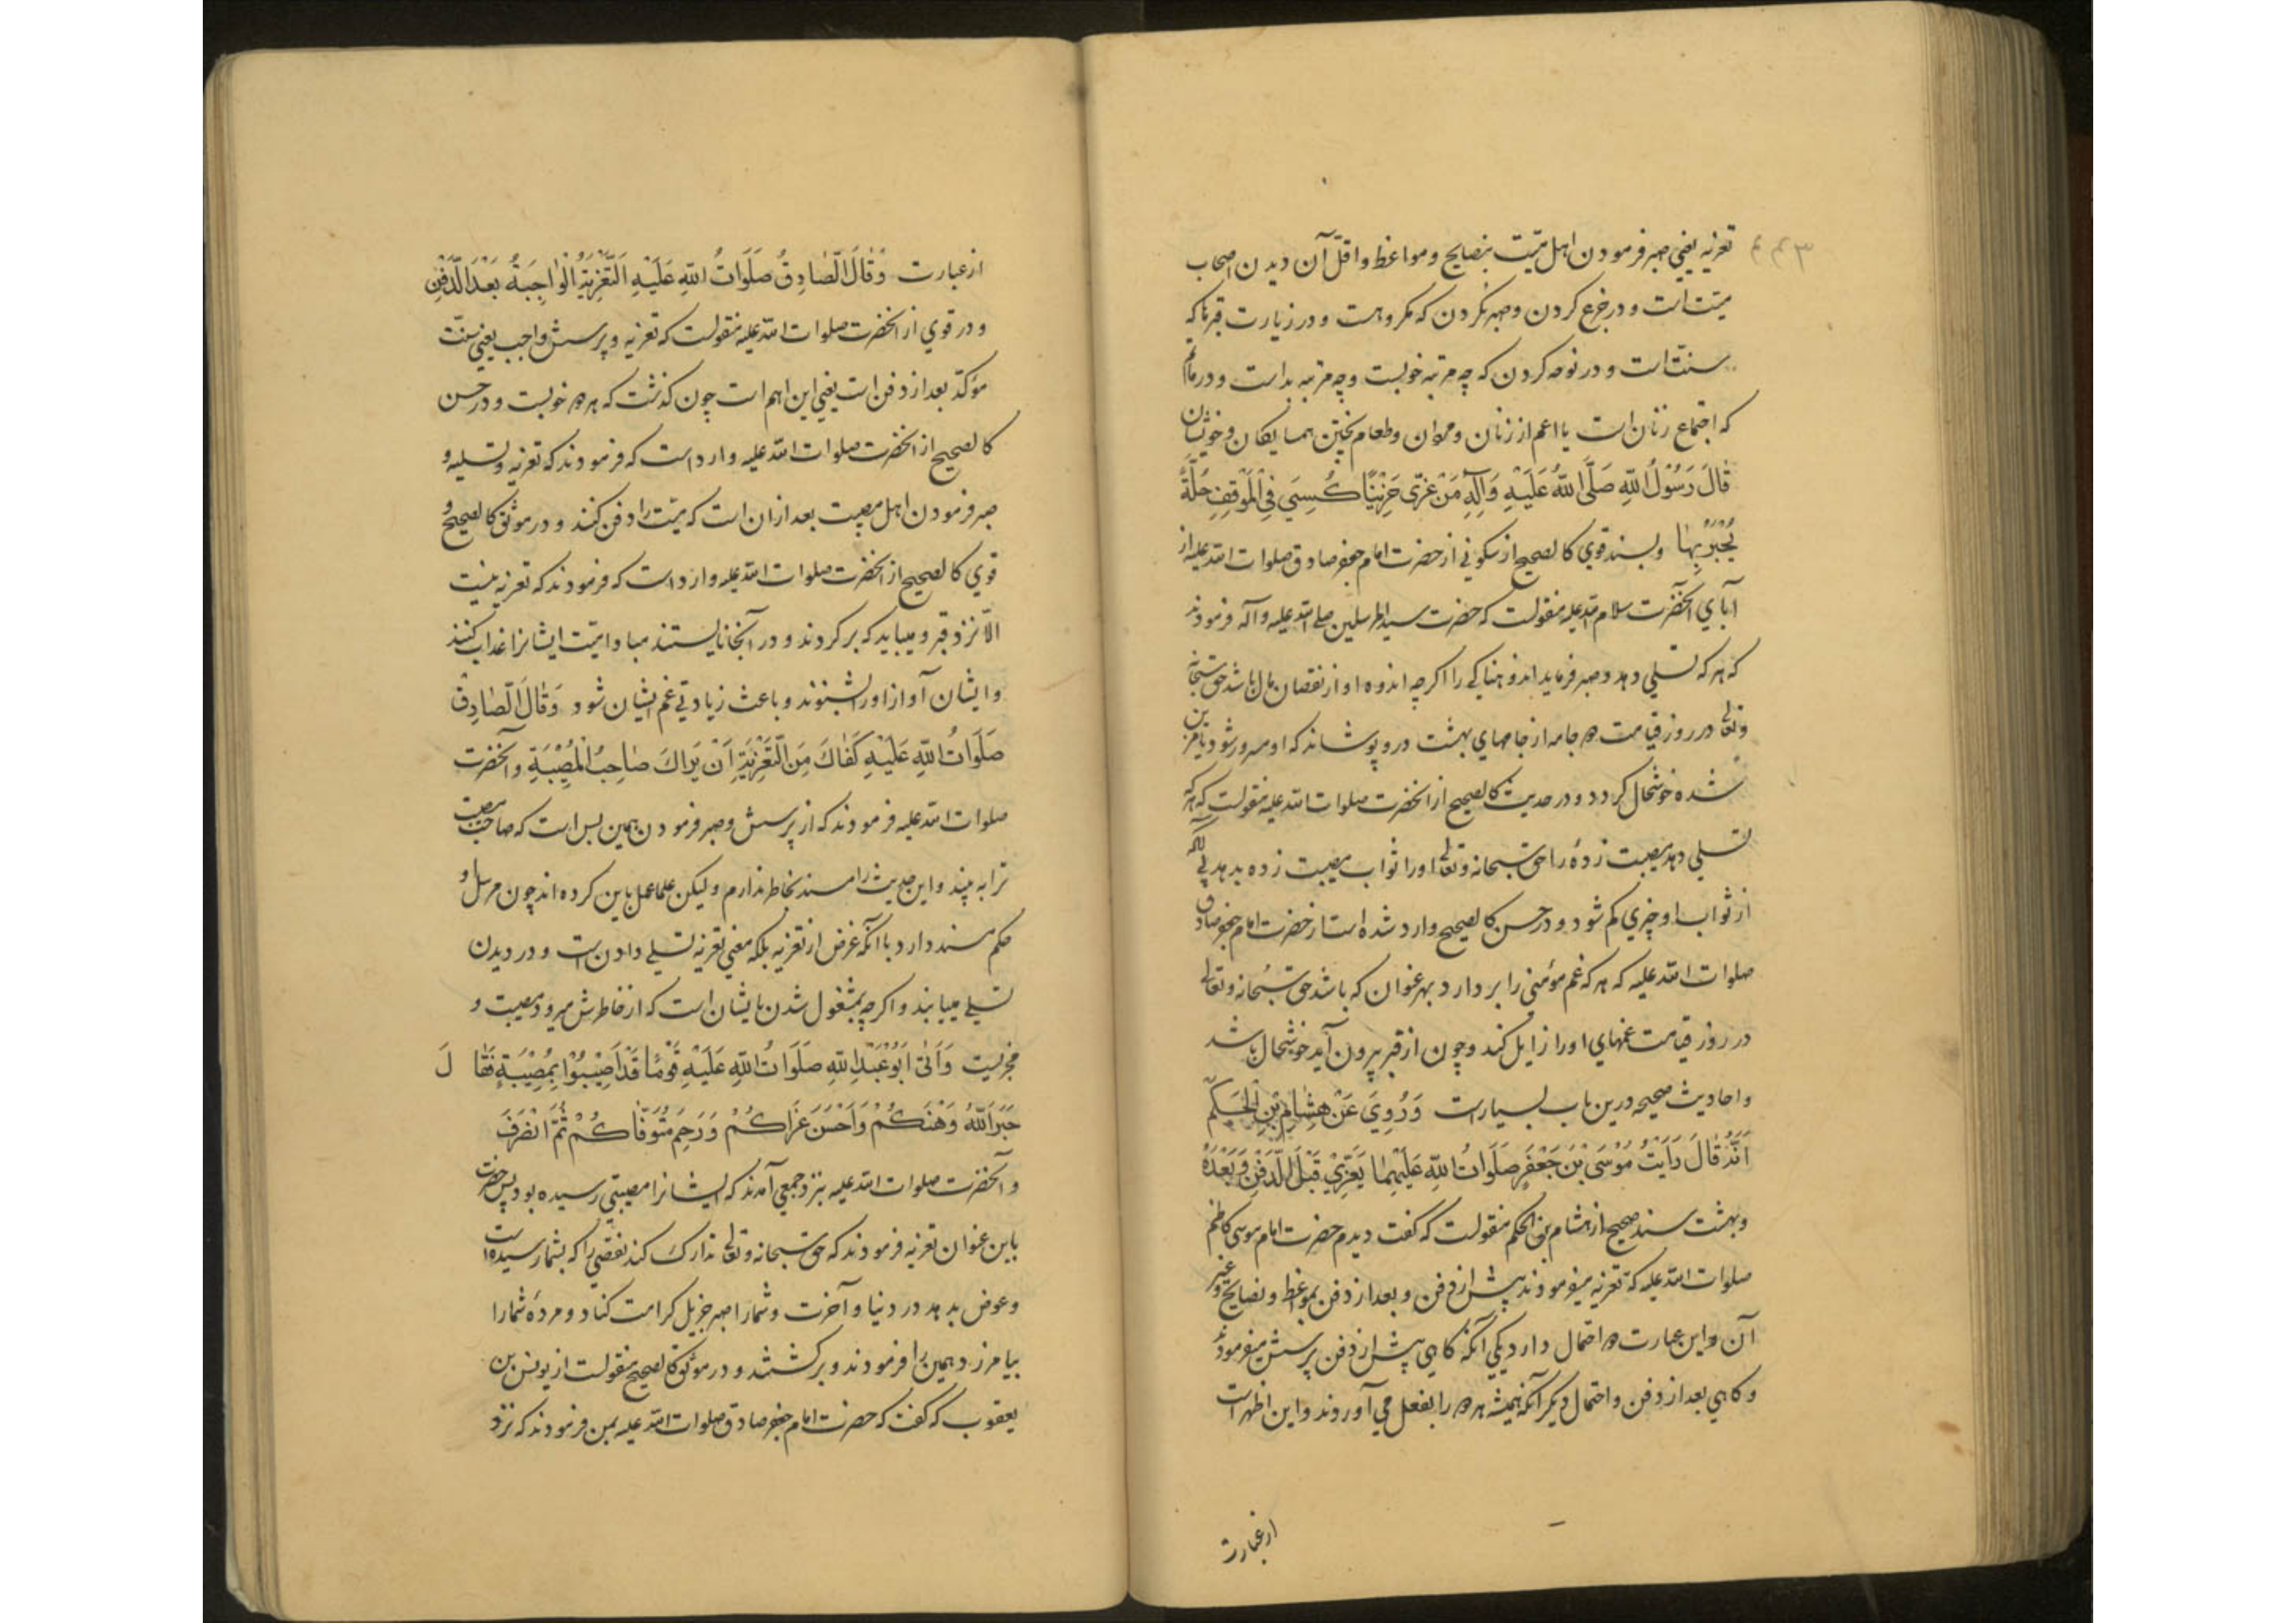 تعزیه یعنی صبر فرمودن اهل میّت بنصایح و مواعظ و اقلّ آن دیدن اصحاب
میّت است و در جزع کردن و صبر نکردن که مکروهست و در زیارت قبرها که
سنّت است و در نوحه کردن که چه مرتبه خوبست و چه مرتبه بد است و در ماتم
که اجتماع زنان است یا اعم از زنان و مردان و طعام پختن همسایکان و خویشان
قَالَ رَسُوْلُ اللهِ صَلَّى اللهُ عَلَيْهِ وَآلِهِ مَنْ عَزّى حَزِيْنًا كُسِيَ فِي الْمَوْقِفِ حُلَّةً
يُحْبَرُ بِهَا و بسند قوی کالصحیح از سکونی از حضرت امام جعفر صادق صلوات الله علیه از
آبای آنحضرت سلام الله علیهم منقولست که حضرت سید المرسلین صلی الله علیه وآله فرمودند
که هر که تسلی دهد و صبر فرماید اندوهناکی را اکرچه اندوه او از نقصان مال باشد حق سبحانه
و تعالی در روز قیامت جامه از جامهای بهشت درو پوشاند که او مسرور شود یا مزین
شده خوشحال کردد و در حدیث کالصحیح از آنحضرت صلوات الله علیه منقولست که هر که
تسلی دهد مصیبت زدهٔ را حق سبحانه و تعالی او را ثواب مصیبت زده بدهد بی آنکه
از ثواب او چیزی کم شود و در حسن کالصحیح وارد شده است از حضرت امام جعفر صادق
صلوات الله علیه که هر که غم مؤمنی را بردارد بهر عنوان که باشد حق سبحانه و تعالی
در روز قیامت غمهای او را زایل کند و چون از قبر بیرون آید خوشحال باشد
و احادیث صحیحه درین باب بسیار است وَرُوِيَ عَنْ هِشَامِ بْنِ الْحَكَمِ
اَنَّهُ قَالَ رَاَيْتُ مُوْسَى بْنَ جَعْفَرٍ صَلَوَاتُ اللهِ عَلَيْهِمَا يُعَزِّيْ قَبْلَ الدَّفْنِ وَبَعْدَهُ
و بهشت سند صحیح از هشام بن الحکم منقولست که کفت دیدم حضرت امام موسی کاظم
صلوات الله علیه که تعزیه میفرمودند پیش از دفن و بعد از دفن بمواعظ و نصایح و غیر
آن و این عبارت احتمال دارد یکی آنکه کاهی پیش از دفن پرسش میفرمودند
و کاهی بعد از دفن و احتمال دیکر آنکه همیشه هر دو را بفعل می آوردند و این اظهر است
از عبارت
از عبارت وَقَالَ الصَّادِقُ صَلَوَاتُ اللهِ عَلَيْهِ اَلتَّعْزِيَةُ الْوَاجِبَةُ بَعْدَ الدَّفْنِ
و در قوی از آنحضرت صلوات الله علیه منقولست که تعزیه و پرسش واجب یعنی سنّت
مؤکدّ بعد از دفن است یعنی این اهم است چون کذشت که هر دو خوبست و در حسن
کالصحیح از آنحضرت صلوات الله علیه وارد است که فرمودند که تعزیه و تسلیه و
صبر فرمودن اهل مصیبت بعد از آن است که میّت را دفن کنند و در موثق کالصحیح و
قوی کالصحیح از آنحضرت صلوات الله علیه وارد است که فرمودند که تعزیه نیست
الّا نزد قبر و میباید که بر کردند و در آنجا نایستند مبادا میّت ایشانرا عذاب کنند
و ایشان آواز او را بشنوند و باعث زیادتی غم ایشان شود وَقَالَ الصَّادِقُ
صَلَوَاتُ اللهِ عَلَيْهِ كَفَاكَ مِنَ التَّعْزِيَةِ اَنْ يَرَاكَ صَاحِبُ الْمُصِيْبَةِ و آنحضرت
صلوات الله علیه فرمودند که از پرسش و صبر فرمودن همین بس است که صاحب مصیبت
ترا به بیند و این حدیث را مسند بخاطر ندارم ولیکن علما عمل باین کرده اند چون مرسل او
حکم مسند دارد با آنکه غرض از تعزیه بلکه معنی تعزیه تسلی دادن است و در دیدن
تسلی میابند و اکرچه بمشغول شدن بایشان است که از خاطرش میرود مصیبت و
مجربست وَاَتَى اَبُوْ عَبْدِ اللهِ صَلَوَاتُ اللهِ عَلَيْهِ قَوْمًا قَدْ اُصِيْبُوْا بِمُصِيْبَةٍ فَقَالَ
جَبَرَ اللّٰهُ وَهْنَكُمْ وَاَحْسَنَ عَزَاكُمْ وَرَحِمَ مُتَوَفَّاكُمْ ثُمَّ انْصَرَفَ
و آنحضرت صلوات الله علیه بنزد جمعی آمدند که ایشانرا مصیبتی رسیده بود پس حضرت
باین عنوان تعزیه فرمودند که حق سبحانه و تعالی تدارک کند نقصی را که بشما رسیده است
و عوض بدهد در دنیا و آخرت و شما را صبر جزیل کرامت کناد و مردهٔ شما را
بیامرزد همین را فرمودند و برکشتند و در موثق کالصحیح منقولست از یونس بن
یعقوب که کفت که حضرت امام جعفر صادق صلوات الله علیه بمن فرمودند که نزد